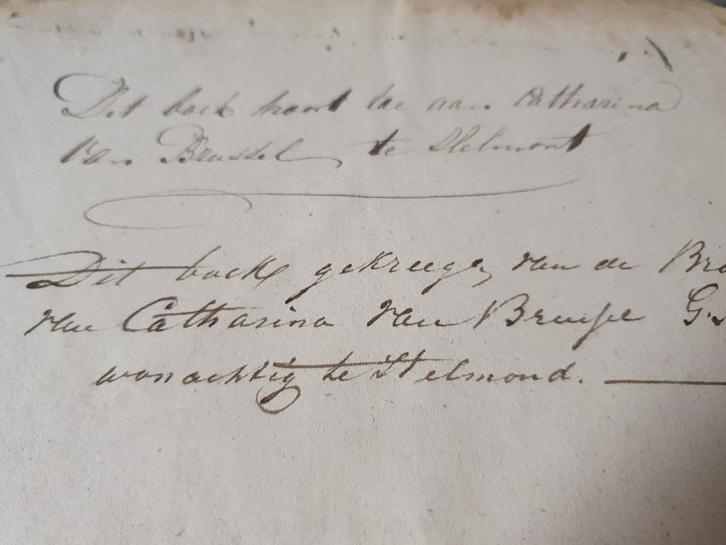 Dit boek hoort toe aan Catharina
Van Brussel te Helmont
Dit boek gekreege van de Bro
van Catharina van Brussel G.
wonachtig te Helmond.